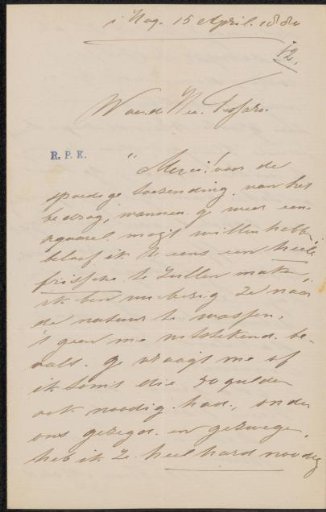 's Hag. 15 April. 1880
12.
Waarde Mr.
R. P. K.
Merci! voor de
spoedige toezending van het
bedrag, wanneer g' meer een
aquarel mogt willen hebben
beloof ik U eens een heele
frissche te zullen maken
ik ben nu bezig ze naar
de natuur te wassen,
't gaan me uitstekend be-
valt. g' vraagt me of
ik soms die 50 gulden
ook noodig had, onder
ons gezegd en gezwegen
heb ik ze heel hard noodig